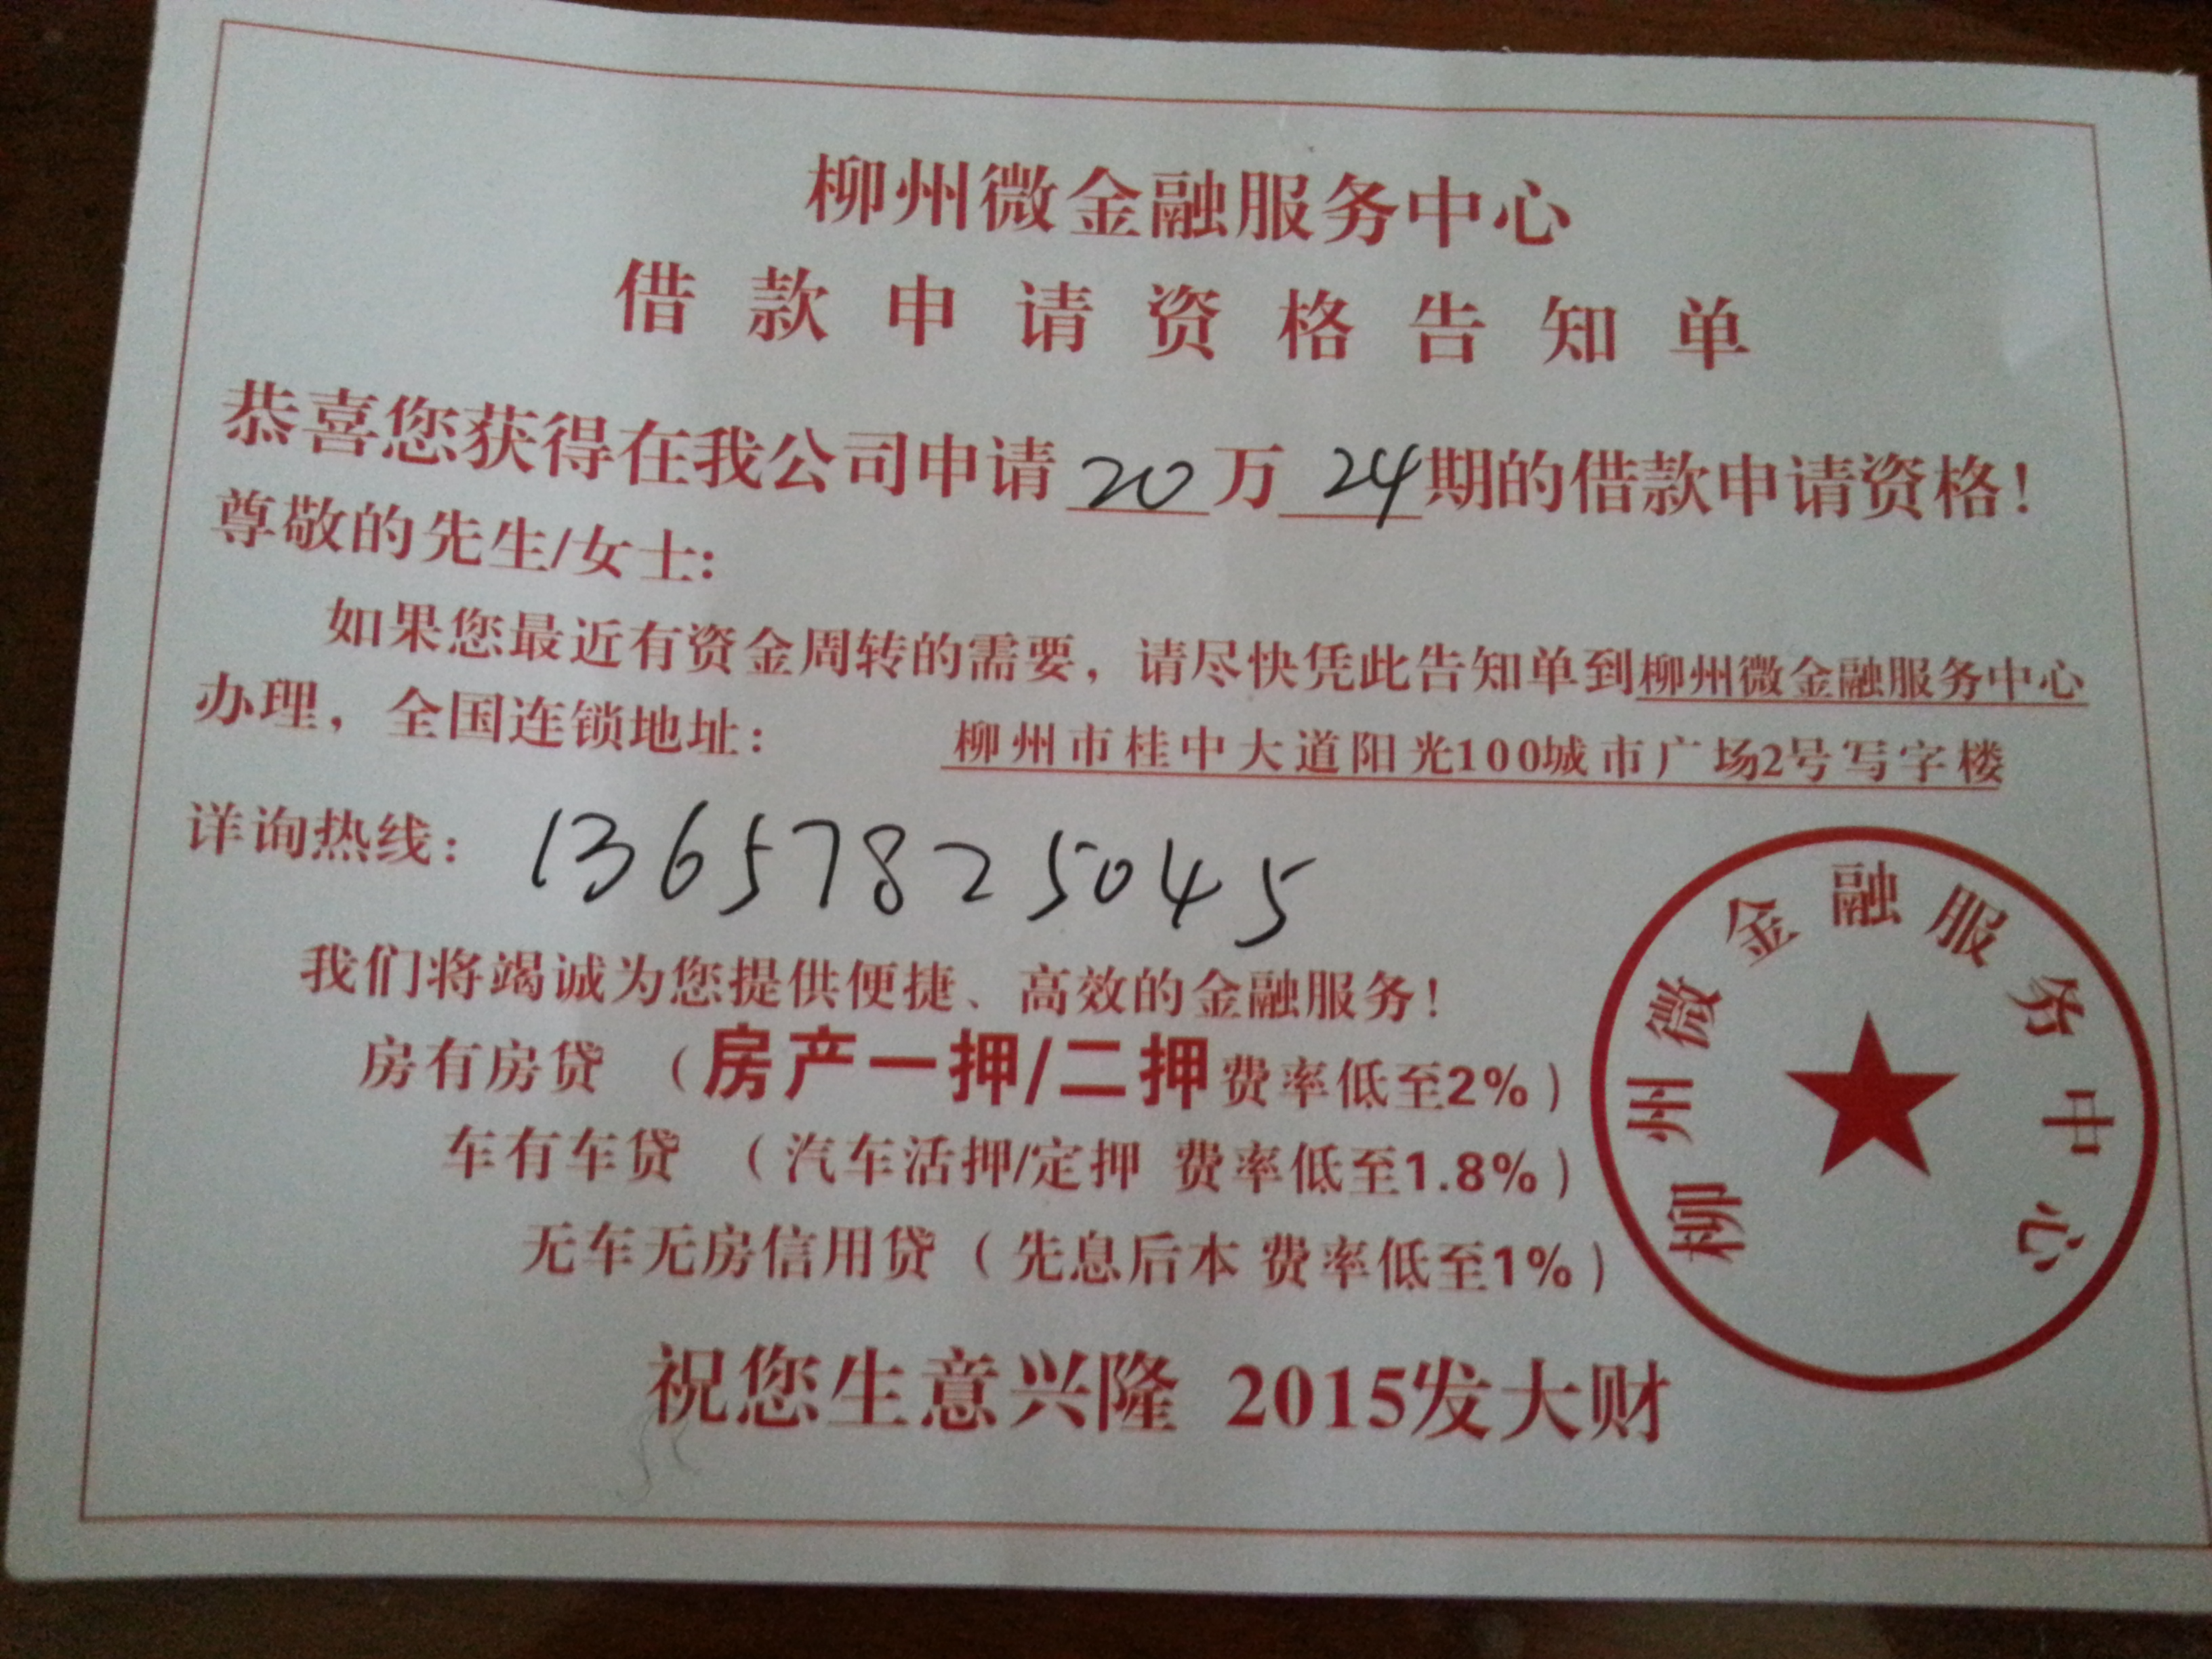 柳州微金融服务中心
借款申请资格告知单
恭喜您获得在我公司申请 20 万 24 期的借款申请资格！
尊敬的先生/女士：
如果您最近有资金周转的需要，请尽快凭此告知单到柳州微金融服务中心
办理，全国连锁地址： 柳州市桂中大道阳光100城市广场2号写字楼
详询热线： 13657825045
我们将竭诚为您提供便捷、高效的金融服务！
房有房贷 （房产一押/二押费率低至2%）
车有车贷 （汽车活押/定押 费率低至1.8%）
无车无房信用贷（先息后本 费率低至1%）
祝您生意兴隆 2015发大财
柳州微金融服务中心